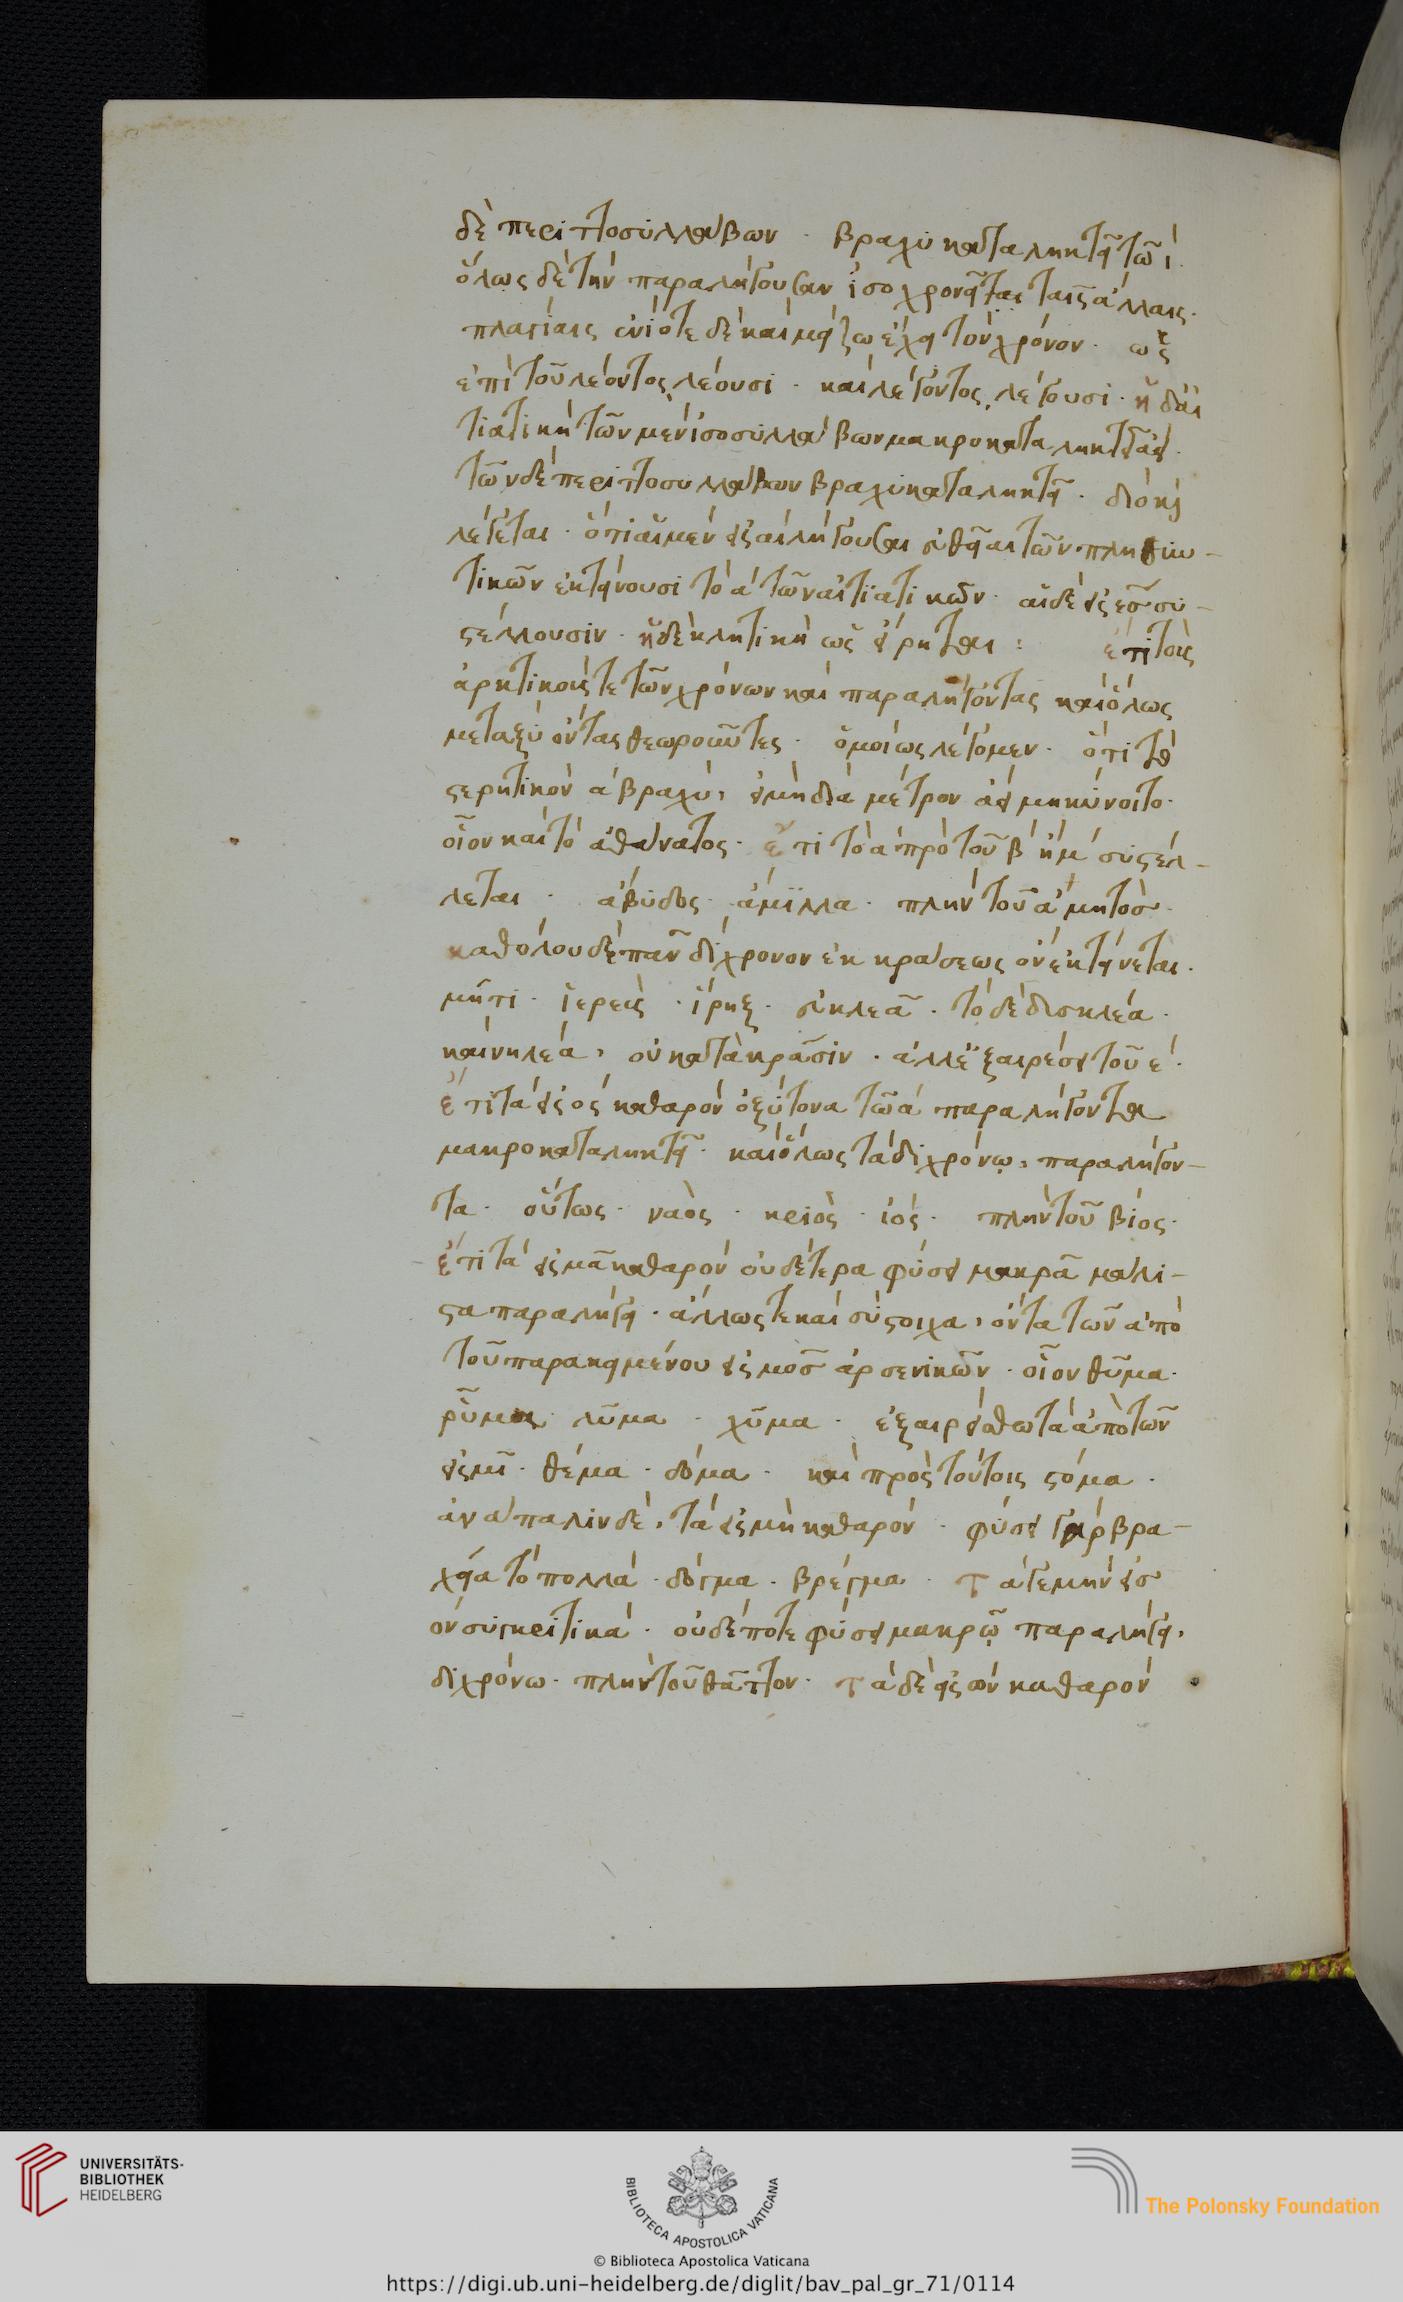 δὲ περιττοσυλλάβων · βραχυκαταληκτεῖ τῶ ι.
ὅλως δὲ τὴν παραλήγουσαν ἰσοχρονεῖται ταῖς ἄλλαις.
πλαγίαις ἐνίοτε δὲ καὶ μείζω ἔχει τὸν χρόνον · ὡς
ἐπὶ τοῦ λέοντος λέουσι · καὶ λέγοντος, λέγουσι · ἡ δὲ αἰ
τιατικὴ τῶν μὲν ἰσοσυλλάβων μακροκαταληκτεῖ ἀεί.
τῶν δὲ περιττοσυλλάβων βραχυκαταληκτεῖ · διὸ καὶ
λέγεται · ὅτι αἱ μὲν εἰς αι λήγουσαι εὐθεῖαι τῶν πληθυν-
τικῶν ἐκτείνουσι τὸ α τῶν αἰτιατικῶν · αἱ δὲ εἰς ες συ-
στέλλουσιν · ἡ δὲ κλητικὴ ὡς εἴρηται : ἔτι τοῖς
ἀρκτικοῖς τε τῶν χρόνων καὶ παραλήγοντας καὶ ὅλως
μεταξὺ ὄντας θεωροῦντες · ὁμοίως λέγομεν · ὅτι τὸ
στερητικὸν α βραχὺ, εἰ μὴ διὰ μέτρον ἀεὶ μηκύνοιτο.
οἷον καὶ τὸ ἀθάνατος · ἔτι τὸ α πρὸ τοῦ β ἢ μ συστέλ-
λεται · ἄβυδος · ἅμιλλα · πλὴν τοῦ ἀμητός.
καθόλου δὲ πᾶν δίχρονον ἐκ κράσεως ὂν ἐκτείνεται.
μῆτι · ἱερεῖς · ἵρηξ · εὐκλεᾶ · τὸ δὲ δυσκλέα.
καὶ νηλέα, οὐ κατὰ κρᾶσιν · ἀλλ' ἐξαιρέσει τοῦ ε.
ἔτι τὰ εἰς ος καθαρὸν ὀξύτονα τῶ α παραλήγοντα
μακροκαταληκτεῖ · καὶ ὅλως τὰ διχρόνω, παραλήγον-
τα · οὕτως · ναὸς · κριὸς · ἰός · πλὴν τοῦ βίος.
ἔτι τὰ εἰς μα καθαρὸν οὐδέτερα φύσει μακρᾶ μάλι-
στα παραλήγει · ἄλλως τε καὶ σύστοιχα, ὄντα τῶν ἀπὸ
τοῦ παρακειμένου εἰς μος ἀρσενικῶν · οἷον θῦμα.
ῥῦμα · λῦμα · χῦμα · ἐξαιρείσθω τὰ ἀπὸ τῶν
εἰς μι · θέμα · δόμα · καὶ πρὸς τούτοις στόμα.
ἀνάπαλιν δὲ, τὰ εἰς μὴ καθαρόν · φύσει γὰρ βρα-
χεῖα τὸ πολλά · δόγμα · βρέγμα · τά γε μὴν εἰς
ον συγκριτικά · οὐδέποτε φύσει μακρῷ παραλήγει,
διχρόνω · πλὴν τοῦ θᾶττον · τὰ δὲ εἰς ων καθαρὸν
UNIVERSITÄTS-
BIBLIOTHEK
HEIDELBERG
BIBLIOTECA APOSTOLICA VATICANA
The Polonsky Foundation
© Biblioteca Apostolica Vaticana
https://digi.ub.uni-heidelberg.de/diglit/bav_pal_gr_71/0114